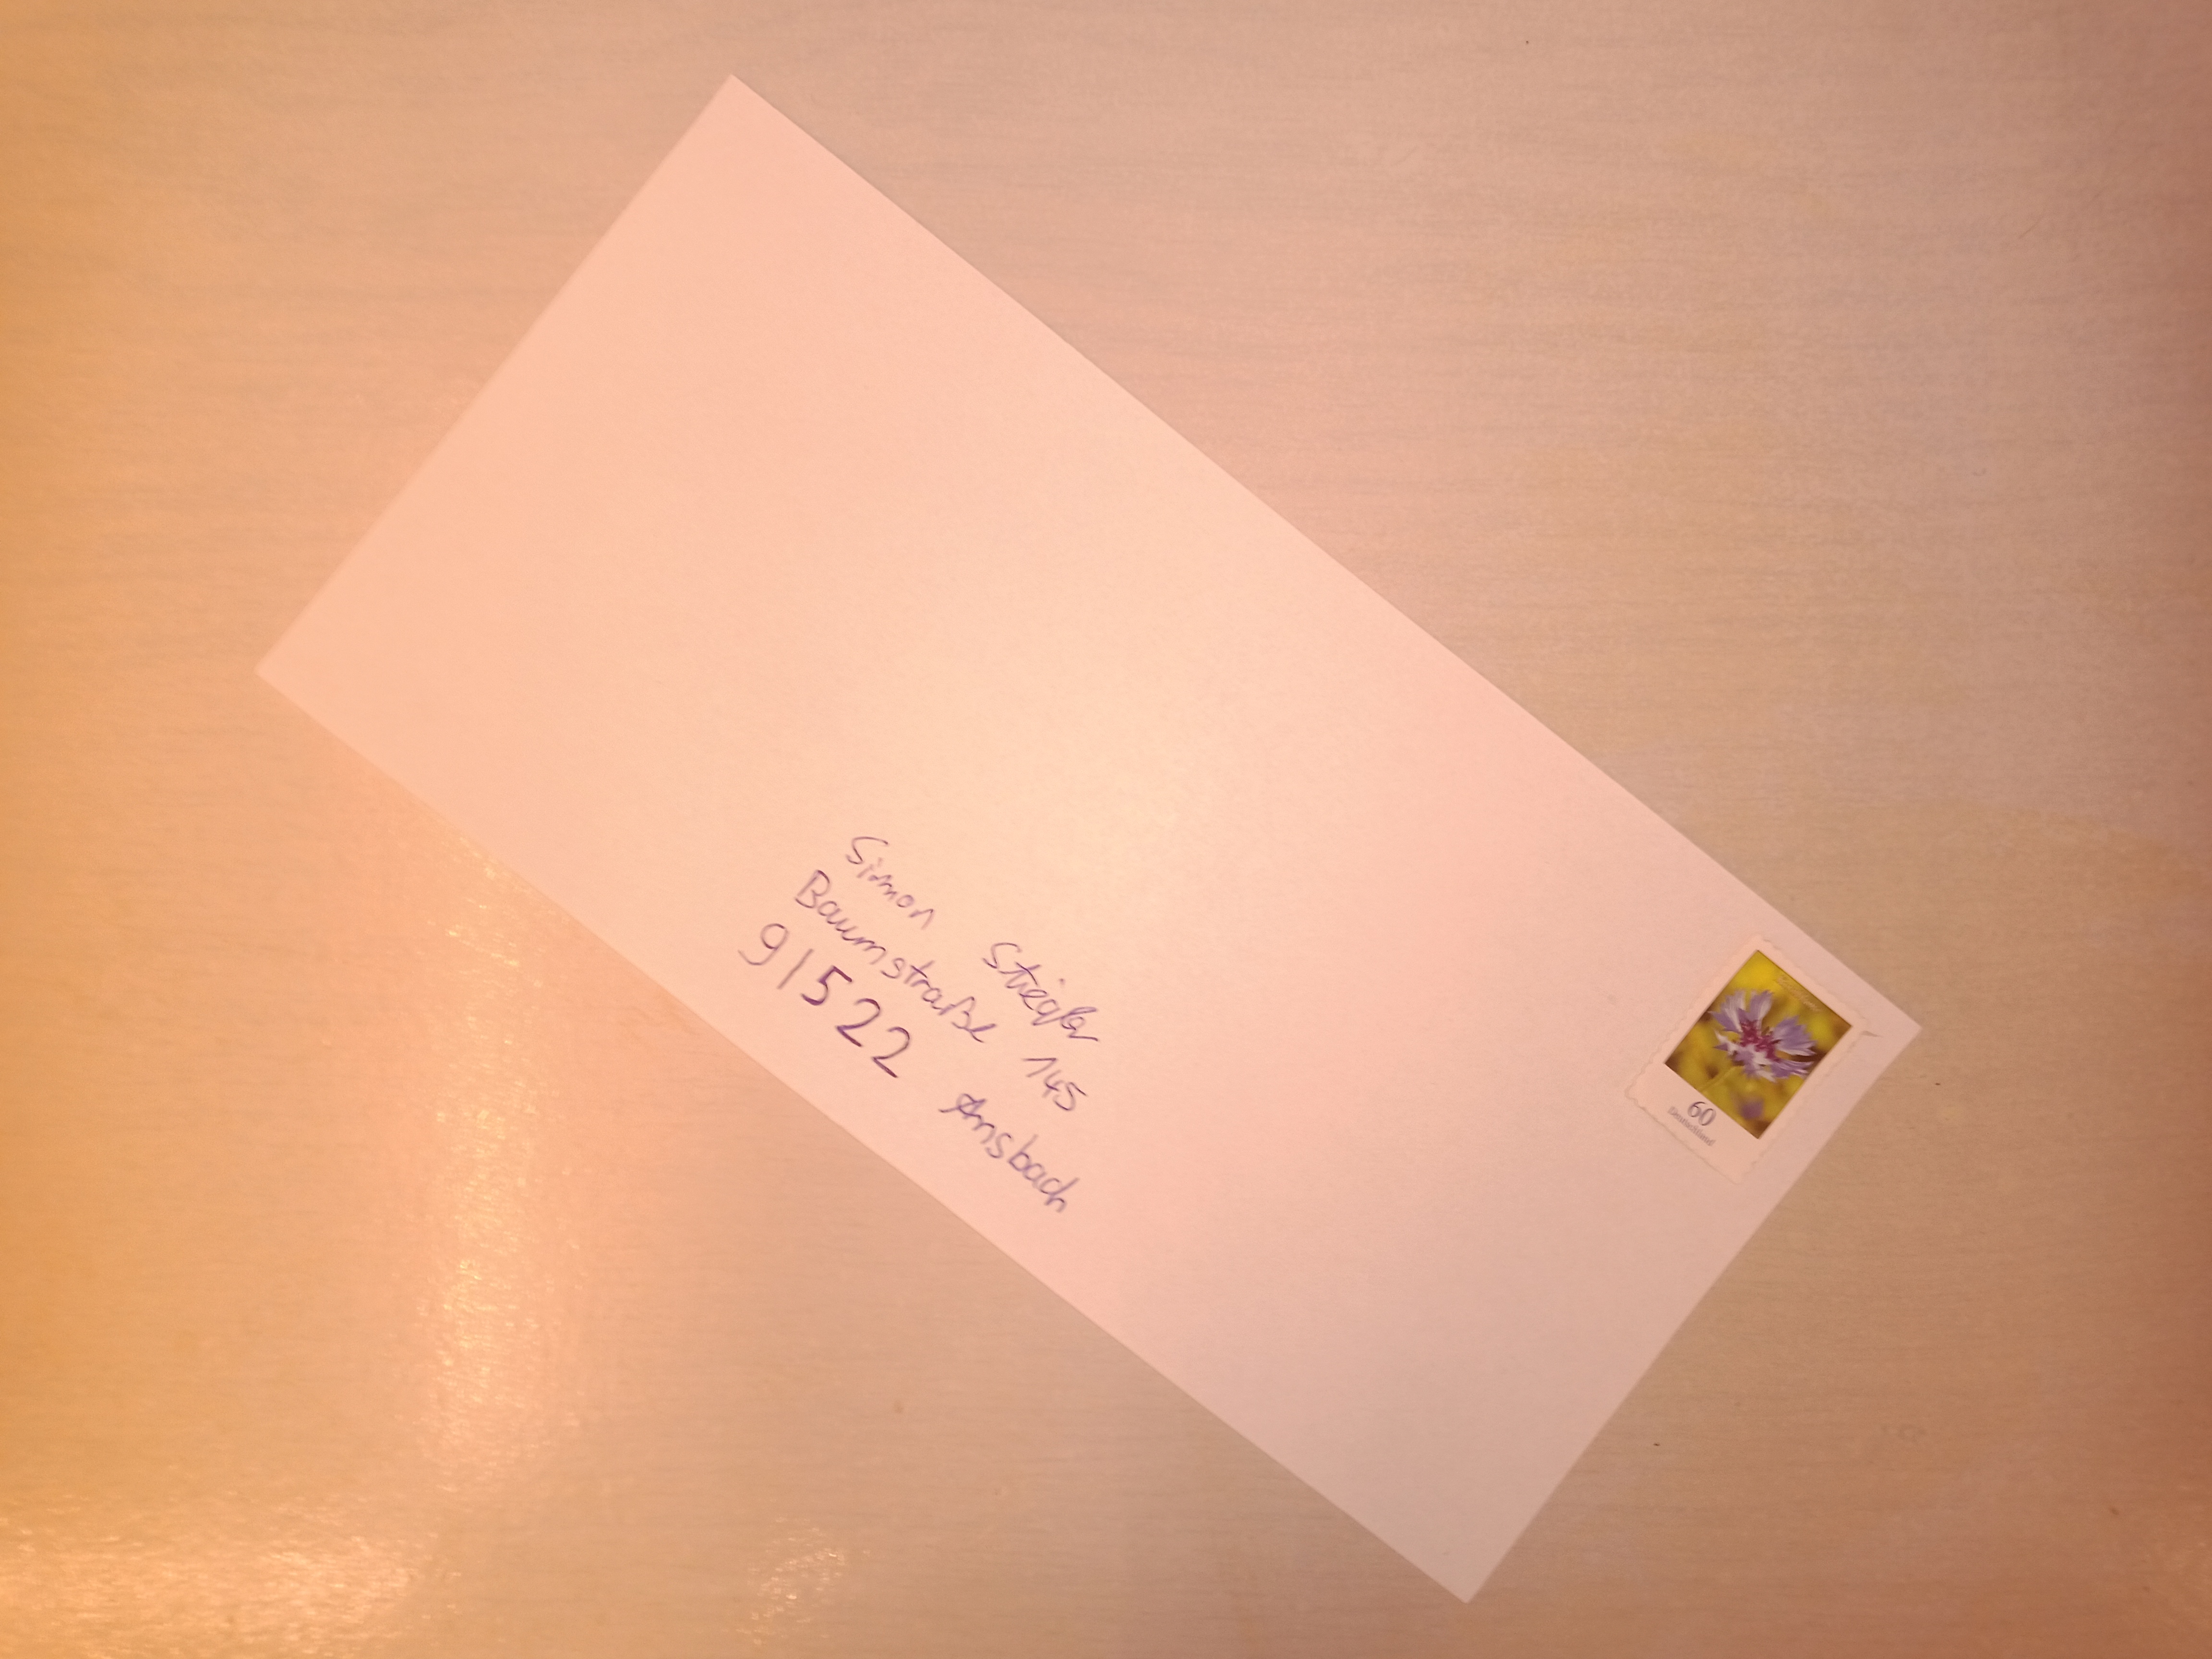 Simon Stiegler
Baumstraße 145
91522 Ansbach
60
Deutschland